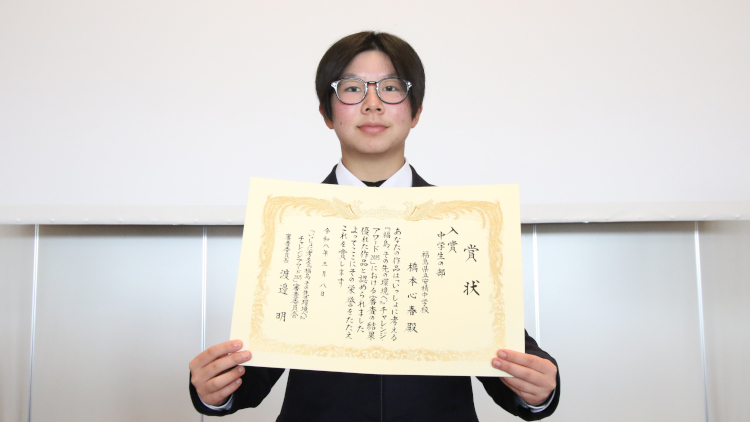 賞状
入賞
中学生の部
福島県立安積中学校
橋本心春殿
あなたの作品は「いっしょに考える
「福島、その先の環境へ。」チャレンジ・
アワード2025」における審査の結果
優れた作品と認められました
よってここにその栄誉をたたえ
これを賞します
令和八年三月八日
「いっしょに考える「福島、その先の環境へ。」
チャレンジ・アワード2025」審査委員会
審査委員長 渡邉明